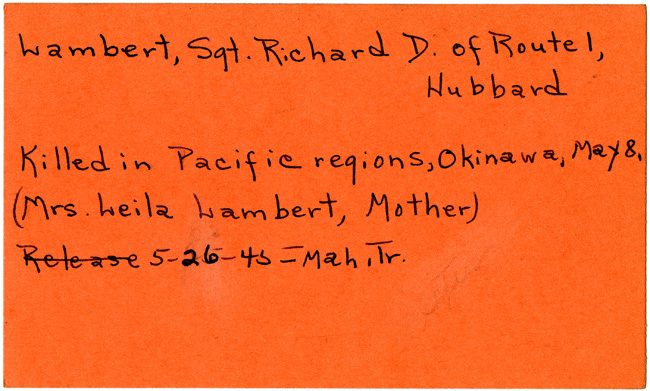 Lambert, Sgt. Richard D. of Route 1,
Hubbard
Killed in Pacific regions, Okinawa, May 8,
(Mrs. Leila Lambert, Mother)
Release 5-26-45 - Mah. Tr.